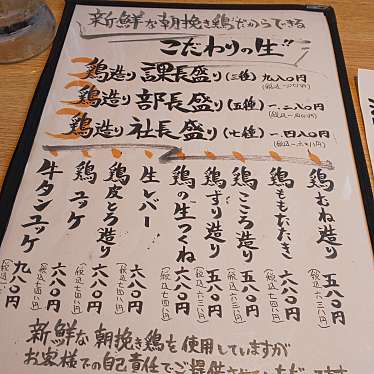 新鮮な朝挽き鶏だからできる
こだわりの生!!
鶏造り 課長盛り(三種)九八〇円
鶏造り 部長盛り(五種)一、二八〇円
鶏造り 社長盛り(七種)一、四八〇円
鶏むね造り 五八〇円(税込六三八円)
鶏ももたたき 六八〇円(税込七四八円)
鶏こころ造り 五八〇円(税込六三八円)
鶏ずり造り 五八〇円(税込六三八円)
鶏の生つくね 六八〇円(税込七四八円)
生レバー 六八〇円(税込七四八円)
鶏皮とろ造り 六八〇円(税込七四八円)
鶏ユッケ 六八〇円(税込七四八円)
牛タンユッケ 九八〇円
新鮮な朝挽き鶏を使用していますが
お客様での自己責任でご提供させて